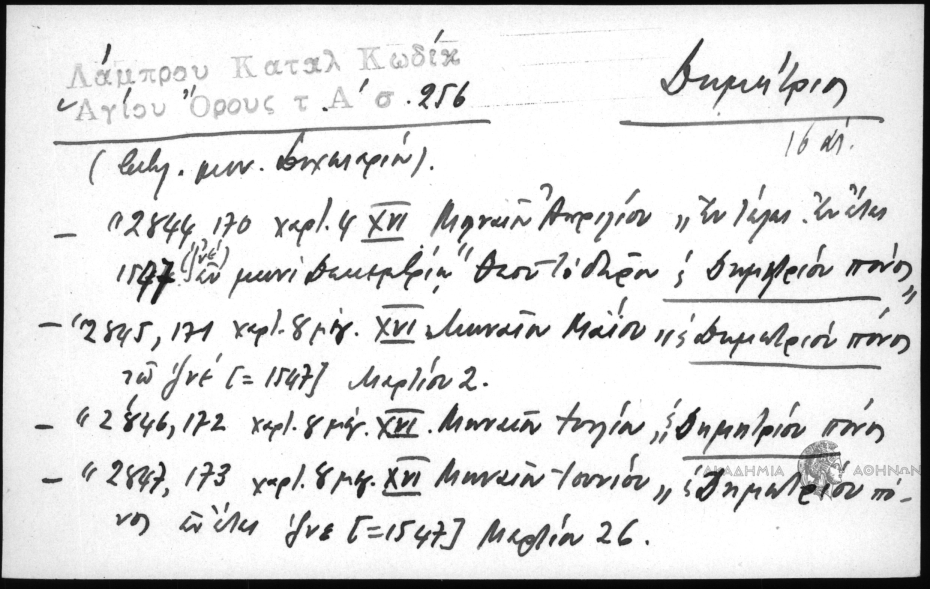 Λάμπρου Καταλ Κωδίκ
Ἁγίου Ὄρους τ. Α΄ σ. 256
Δημήτριος
16 αἰ.
(βιβλ. μον. Δοχειαρίου).
— "2844, 170 χαρτ. 4 XVI Μηναῖον Ἀπριλίου „Ἐν τέλει. Ἐν ἔτει
1547 (ζνέ) ἐν μηνὶ Δεκεμβρίῳ" Θεοῦ τὸ δῶρον ἐ Δημητρίου πόνος"
— "2845, 171 χαρτ. 8 μεγ. XVI Μηναῖον Μαΐου „ἐ Δημητρίου πόνος
τῷ ζνέ [= 1547] Μαρτίου 2.
— "2846, 172 χαρτ. 8 μεγ. XVI. Μηναῖον Ἰουλίου „ἐ Δημητρίου πόνος
— "2847, 173 χαρτ. 8 μεγ. XVI Μηναῖον Ἰουνίου „ἐ Δημητρίου πό-
νος ἐν ἔτει ζνε [=1547] Μαρτίου 26.
ΑΚΑΔΗΜΙΑ ΑΘΗΝΩΝ